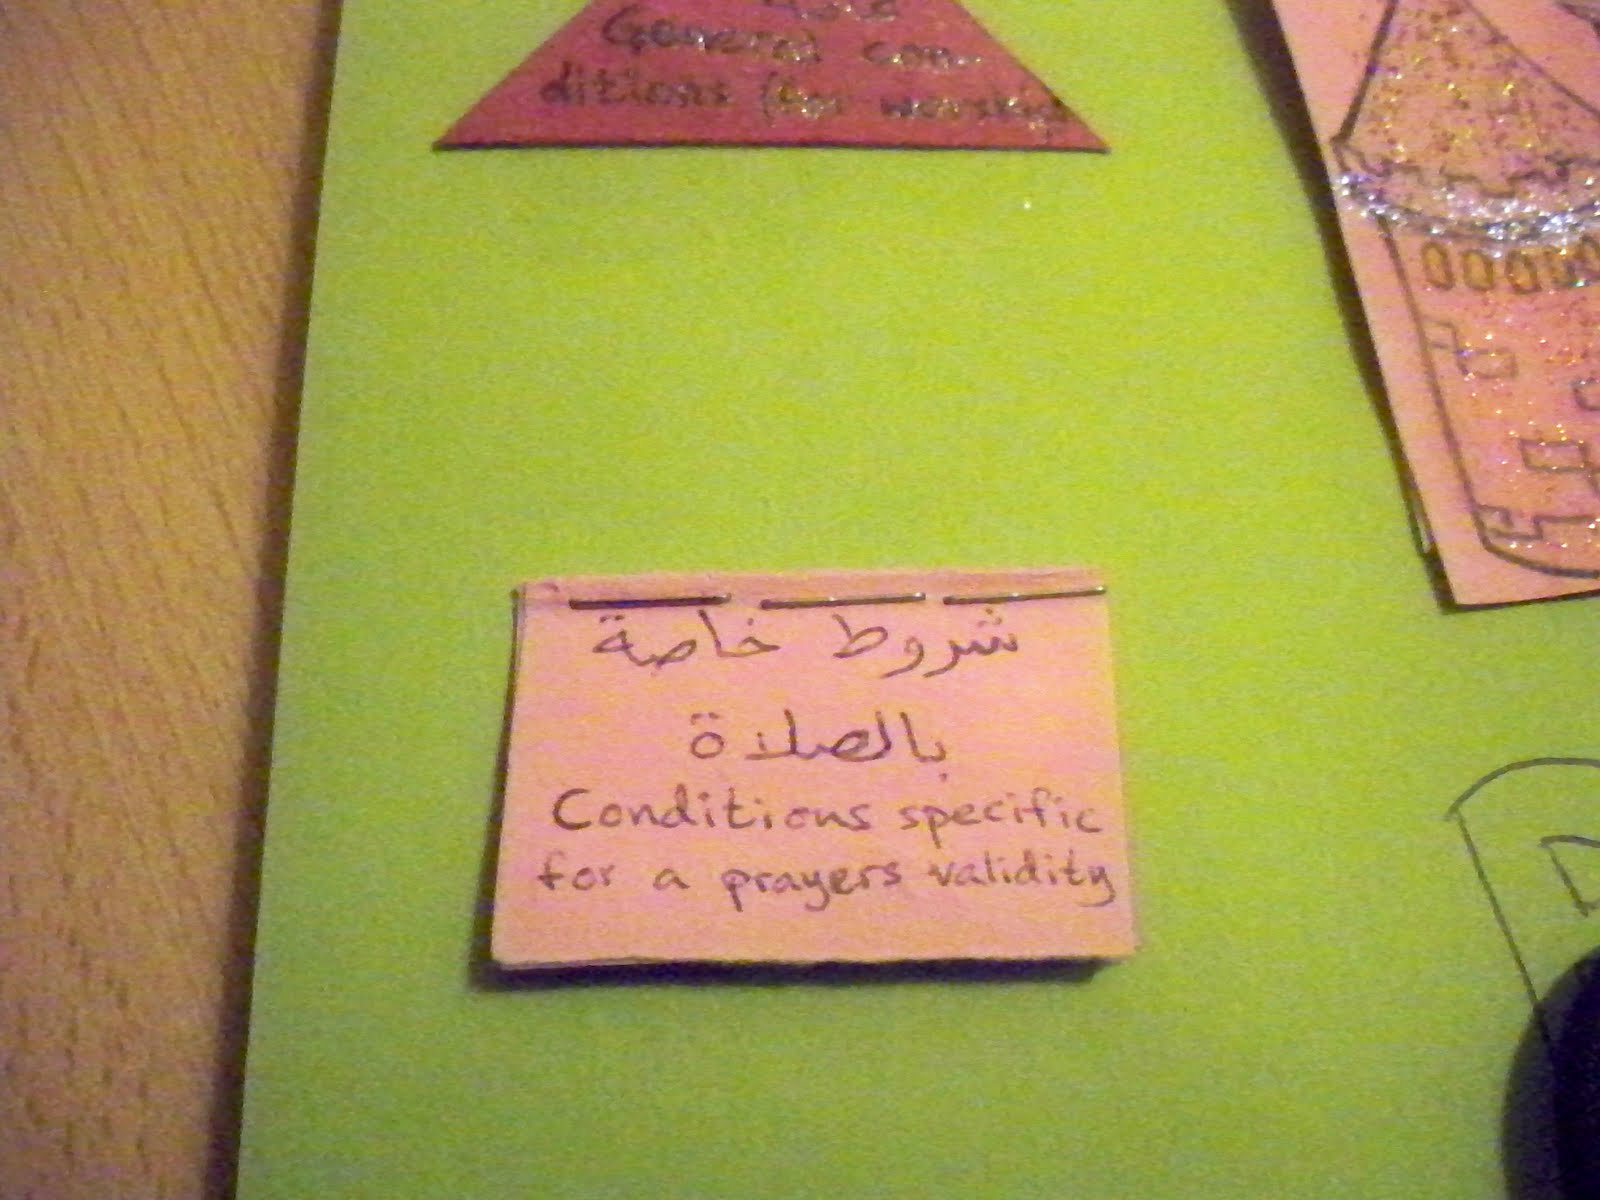 General con-
ditions (for worship
شروط خاصة
بالصلاة
Conditions specific
for a prayers validity
D